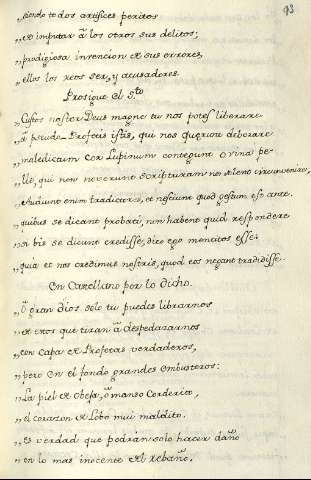 93
„siendo todos artifices peritos
„et imputar â los otros sus delitos;
„prodigiosa invencion et sus errores,
„ellos los reos ser, y acusadores.
Prosigue el S.to
„Custos noster Deus magne tu nos potes liberare
„â pseudo-Profetis istis, qui nos querunt deborare
„maledictum cor Lupinum contegunt ovina pe-
„lle, qui non noverunt scripturam
„Audiunt enim traditores, et nesciunt quod gestum est ante.
„quibus se dicant probati, non habent quod respondere
„si bis se dicunt credisse, dico ego mentitos esse:
„quia et nos credimus nostris, quod eos negant tradidisse.
En Castellano por lo dicho.
„ô gran Dios solo tu puedes librarnos
„et estos que tiran â despedazarnos
„con capa et Profetas verdaderos,
„pero en el fondo grandes embusteros:
„La piel et Obeja, ô manso Corderito,
„el corazon et Lobo mui maldito.
„es verdad que podrán solo hacer daño
„en lo mas inocente etl rebaño.